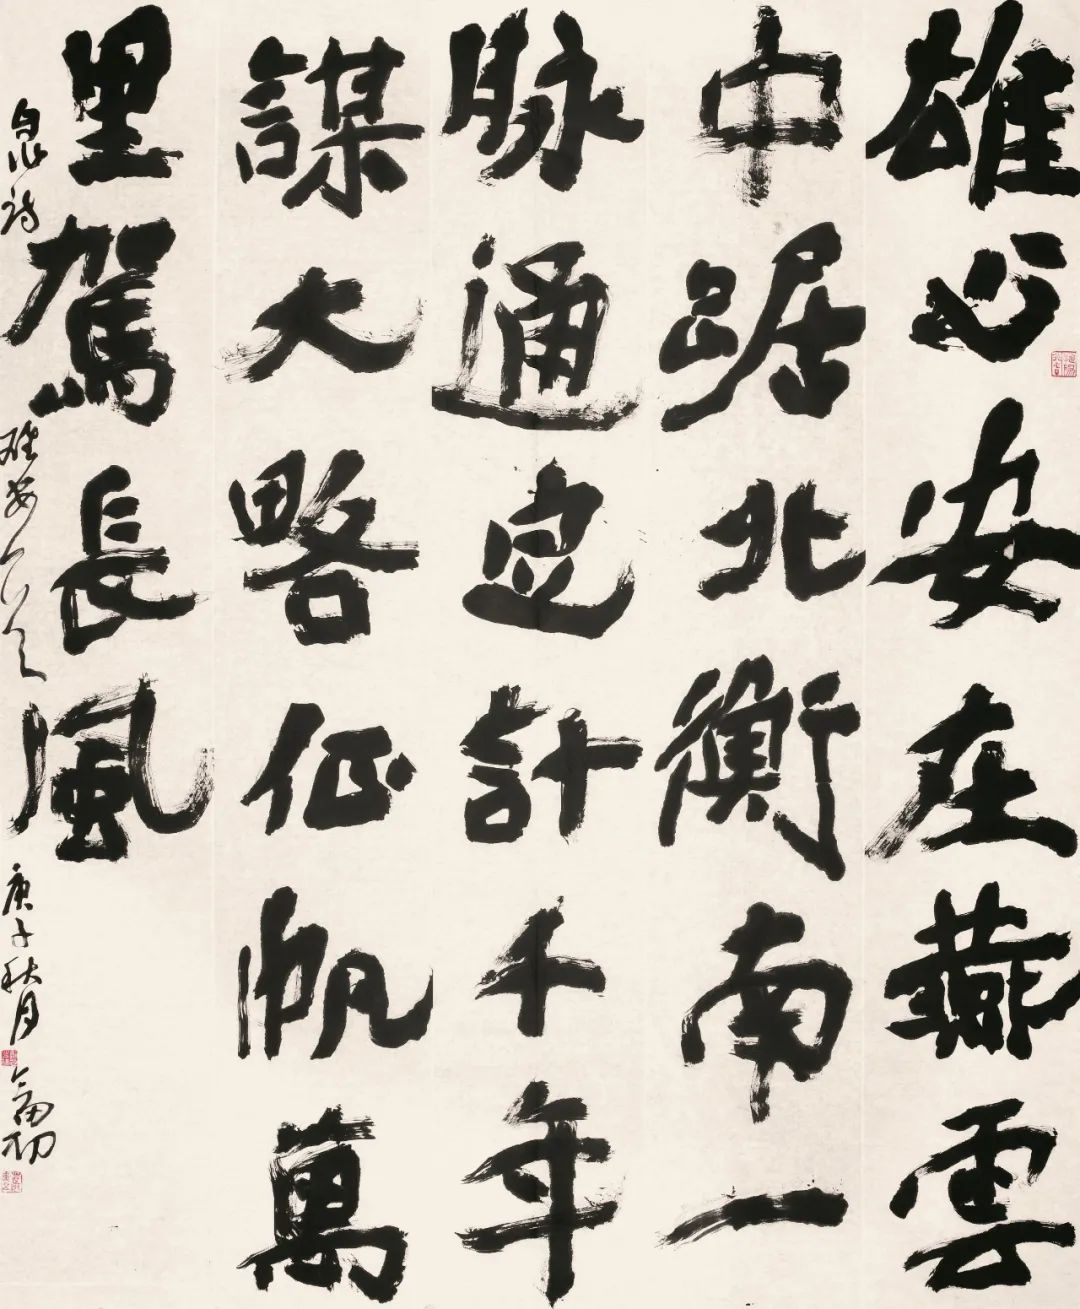 雄心安在燕雲
中踞北衡南一
脉通定計千年
謀大略征帆萬
里駕長風
詩 雄安 庚子秋月